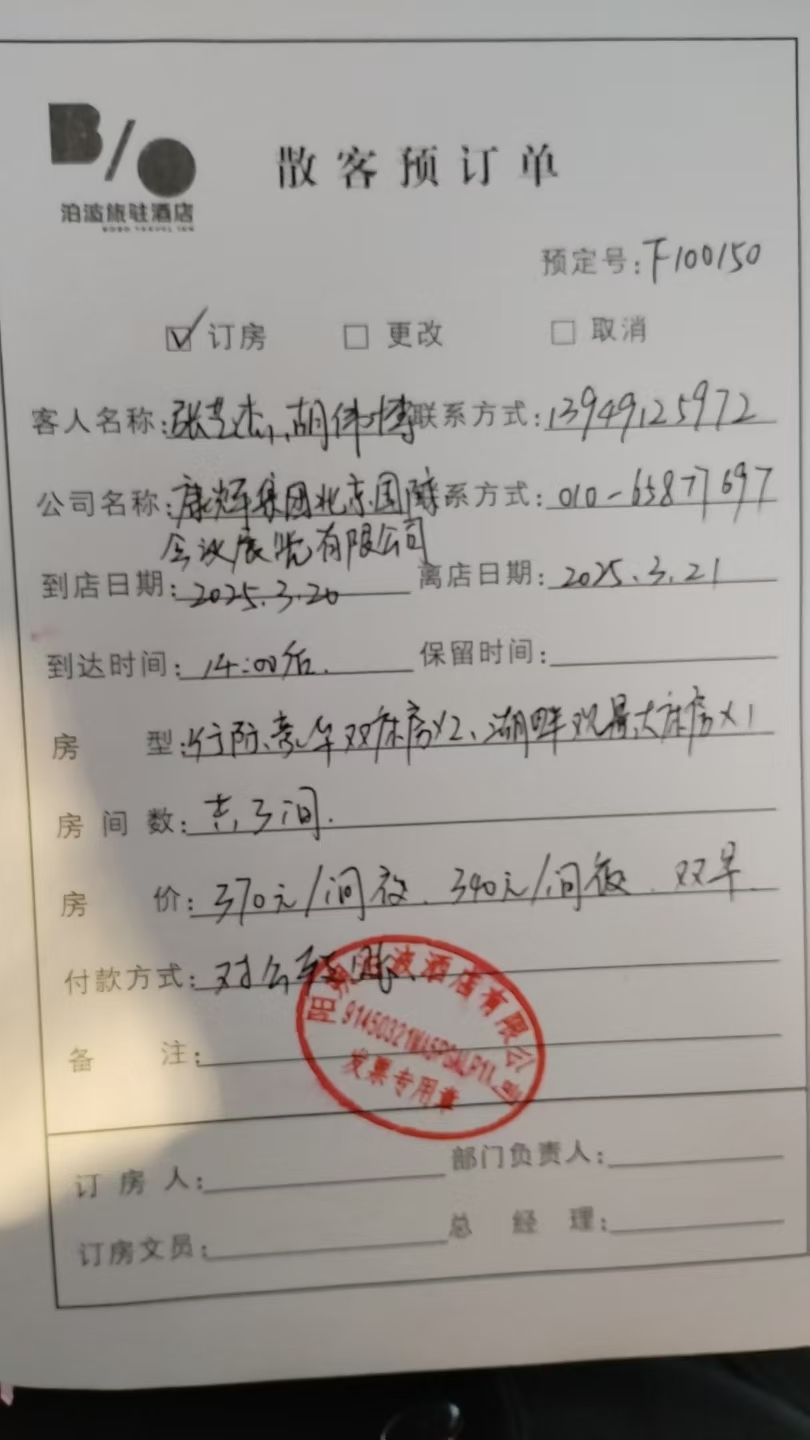 B/O
泊波旅驻酒店
散客预订单
预定号:F100150
订房 更改 取消
客人名称:张艺杰、胡伟博 联系方式:13949125972
公司名称:康辉集团北京国际 系方式:010-65877697
会议展览有限公司
到店日期:2025.3.20 离店日期:2025.3.21
到达时间:14:00后. 保留时间:
房 型:豪华双床房x2、湖畔观景大床房x1
房间数:共3间.
房 价:370元/间夜.340元/间夜.双早
付款方式:对公转账
波酒店有限公司
发票专用章
备 注:
订房人: 部门负责人:
订房文员: 总经理: